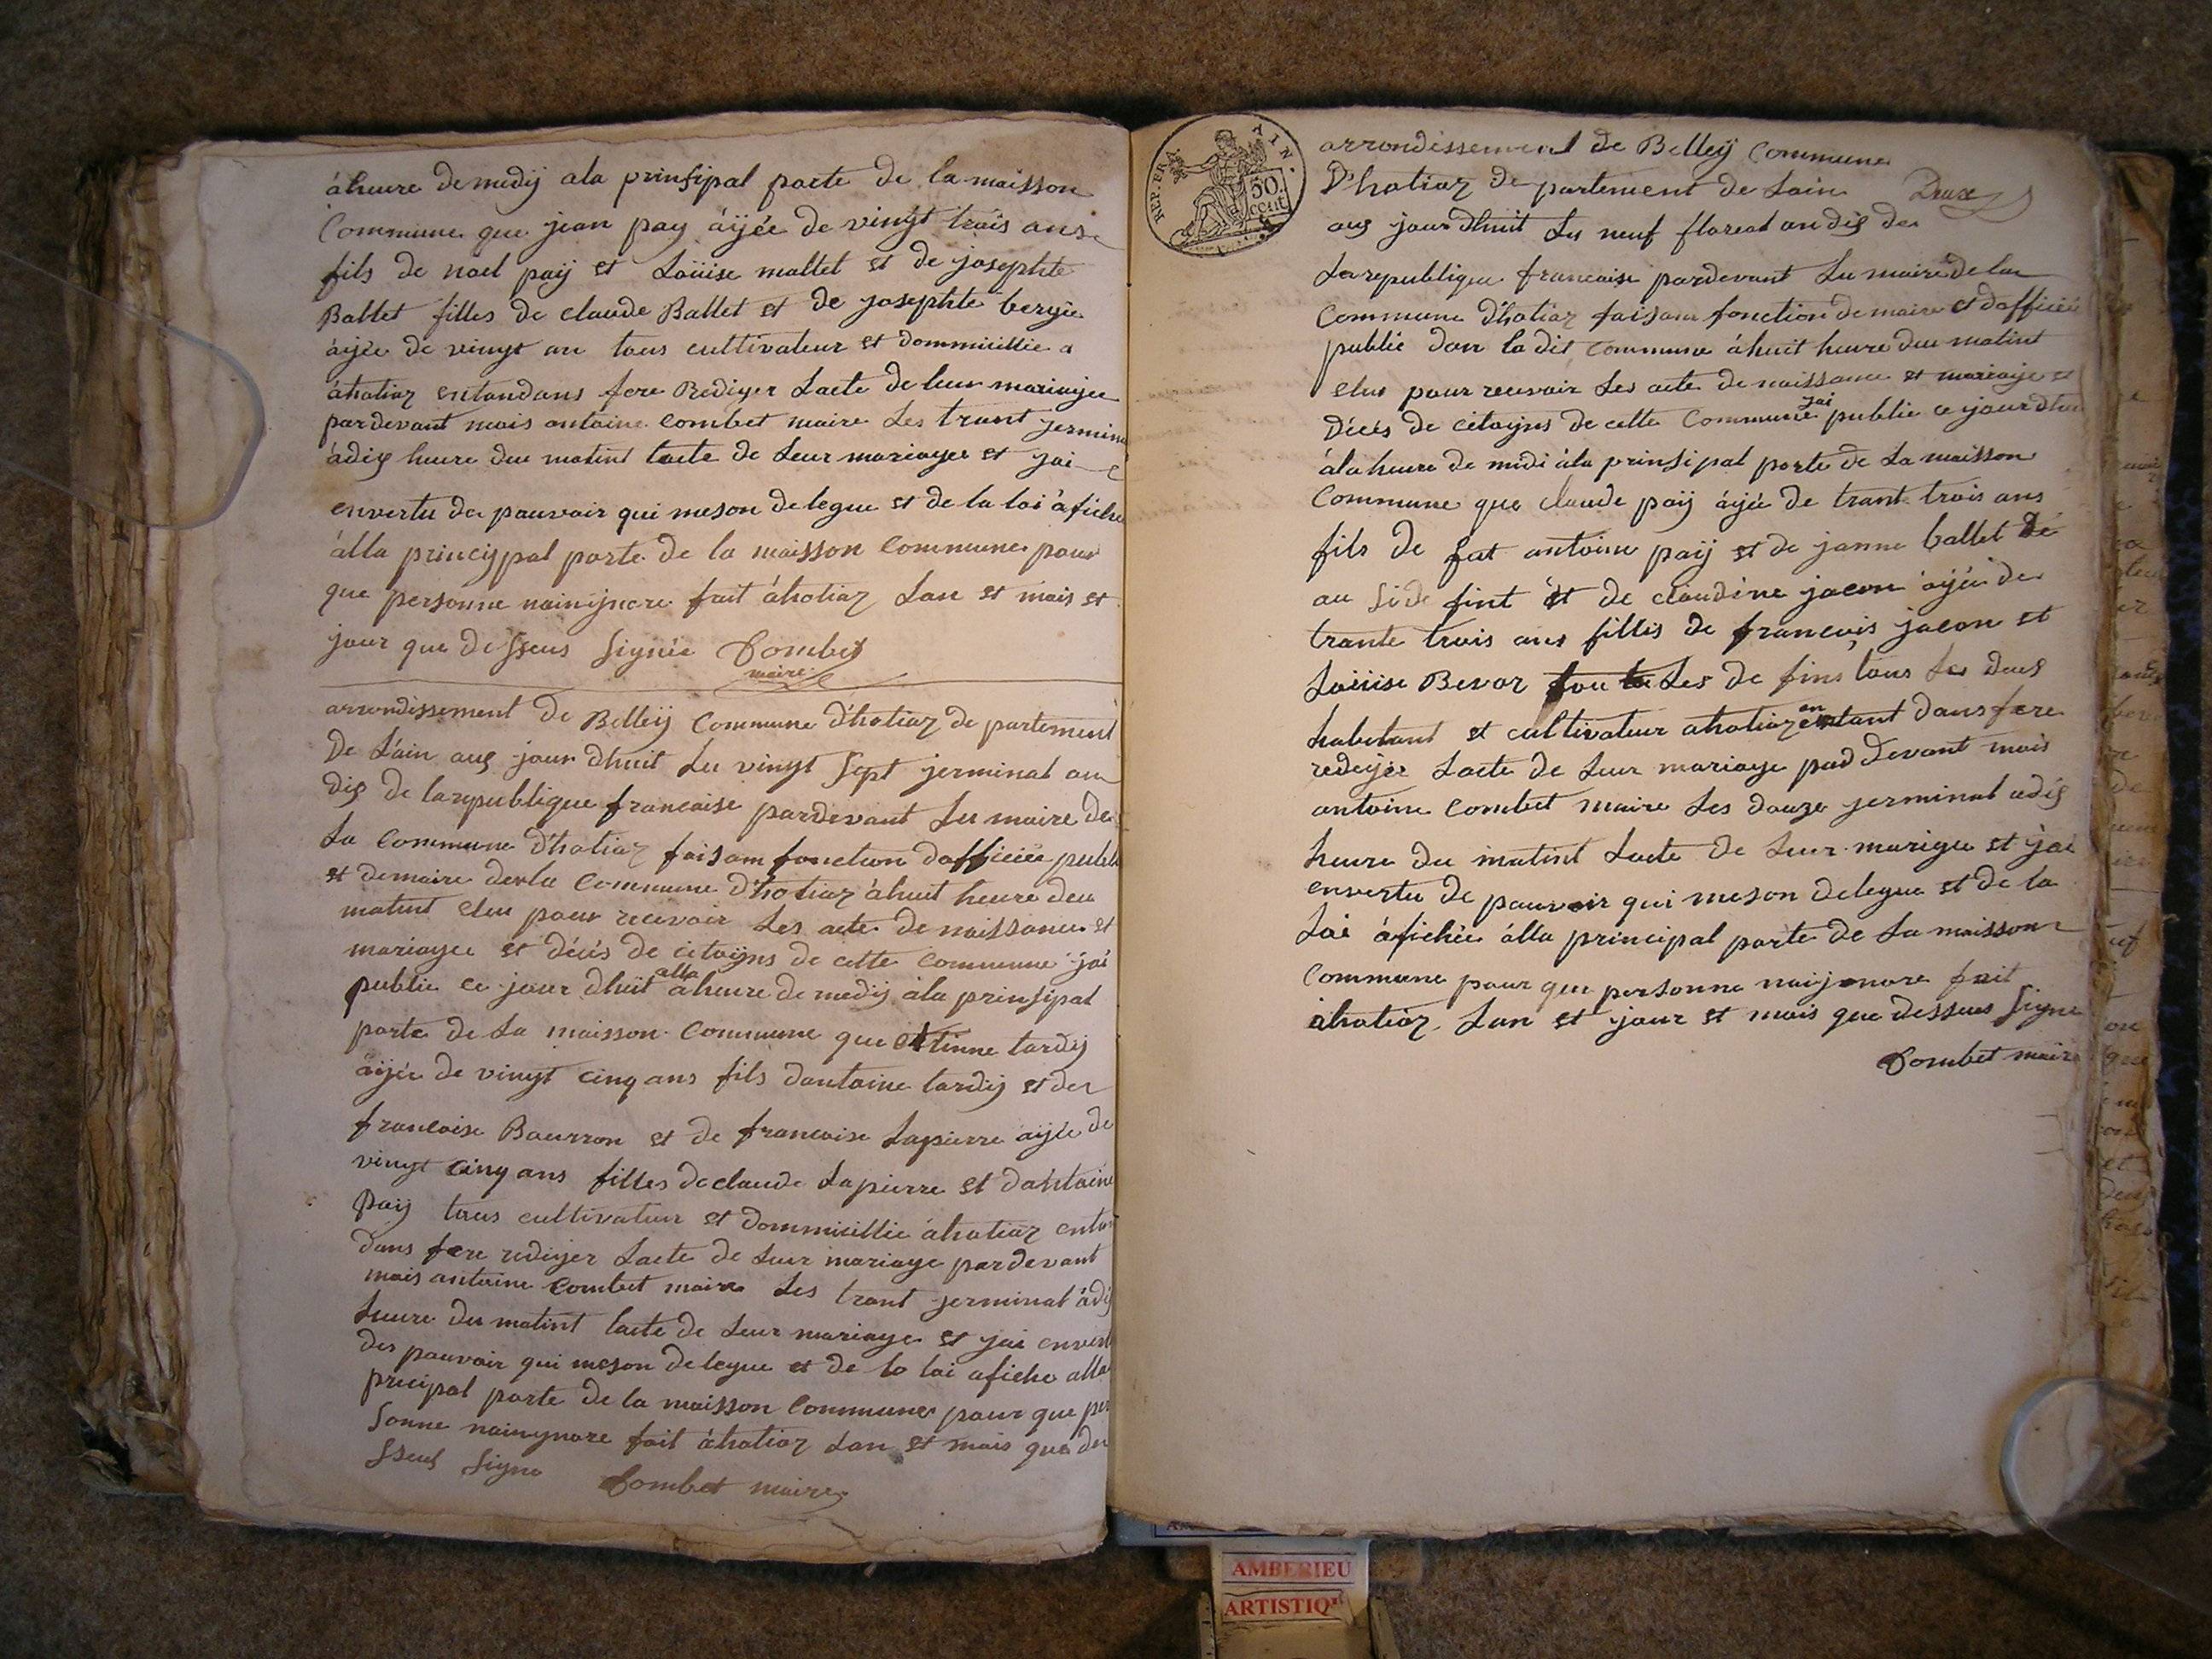 áheure de medij ala prinsipal porte de la maisson
Commune que jean pay áÿée de vingt trois ans
fils de noel paÿ et Loüise mallet et de josephte
Ballet filles de claude Ballet et de josephte bergie
áÿée de vingt an tous cultivateur et dommicillie a
áhotiaz entandans fere Rediger Lacte de leur mariajee
pardevant mois antoine Combet maire Les trant jermina
ádix heure deu matint lacte de Leur mariagee et jai
envertu de pouvoir qui meson delegue et de la loi áfiche
álla princypal porte de la maisson Commune pour
que personne nainijnore fait áhotiaz Lan et mois et
jour que desseus Signée Combet
maire
arrondissement de Belleÿ Commune d'hotiaz departement
De L'ain aux jour dhuit Le vingt Sept jerminal an
dix de larepublique francaise pardevant Le maire de
La Commune D'hotiaz faisam fonction dofficiée publi
et demaire de la Commune d'hotiaz áhuit heure deu
matint eleu pour recevoir Les acte de naissance et
mariagee et décés de citoÿns de cette Commune jai
publie ce jour dhuit alla áheure de medij ála prinsipal
porte de La maisson Commune que Etinne tardij
áÿée de vingt cinq ans fils dantoine tardij et de
francoise Bourron et de francoise Lapierre áÿée de
vingt cinq ans filles de claude Lapierre et dantoine
Paÿ tous cultivateur et dommicillie áhotiaz entan
dans fere rediger Lacte de Leur mariage pardevant
mois antoine Combet maire Les trant jerminal ádix
heure du matint lacte de Leur mariage et jai envert
de pouvoir qui meson delegue et de la loi afiche alla
prncipal porte de la maisson Commune pour que per
Sonne nainynore fait áhotiaz Lan et mois que de
Sseus Signe Combet maire
REP. FRA. AIN.
50.
cent.
arrondissement de Belleÿ Commune
D'hotiaz departement de Lain
aux jour dhuit Le neuf floreal an dix de
Larepublique francaise pardevant Le maire de la
Commune D'hotiaz faisan fonction de maire et dofficiée
publié dan ladit Commune áhuit heure deu matint
elus pour recevoir Les acte de naissance et mariaje et
décés de citoyns de cette Commune jai publie ce jour dhu
álaheure de midi ála prinsipal porte de La maisson
Commune que claude paÿ áÿée de trant trois ans
fils de fut antoine paÿ et de janne ballet De
au Side fint et de claudine jacon áÿée de
trante trois ans fillis de francois jacon et
Loüise Bevoz Les de fins tous Les deus
habitant et cultivateur ahotiaz entant dans fere
redigée Lacte de Leur mariage pad devant mois
antoine Combet maire Les douze jerminal adix
heure du matint Lacte de Leur marige et jai
envertu de pouvoir qui meson delegue et de la
Loi áfichée álla principal porte de La maisson
Commune pour que personne naijnore fait
áhotiaz Lan et jour et mois que dessus Signe
Combet maire
AMBERIEU
ARTISTIQ